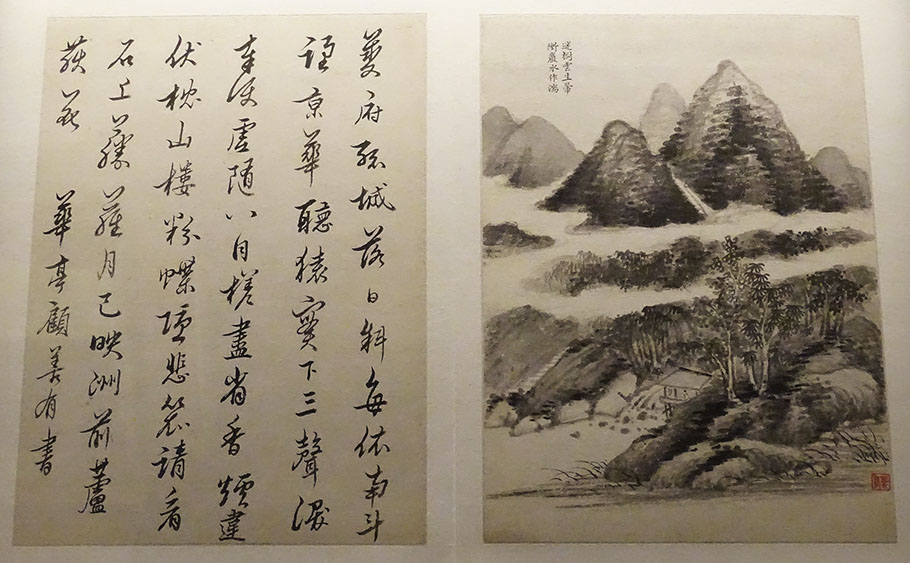 夔府孤城落日斜每依南斗
望京華聽猿實下三聲淚
奉使虛隨八月槎畫省香爐違
伏枕山樓粉堞隱悲笳請看
石上藤蘿月已映洲前蘆
荻花 華亭顧善有書
迷樹雲生帶
衝巖水作湍